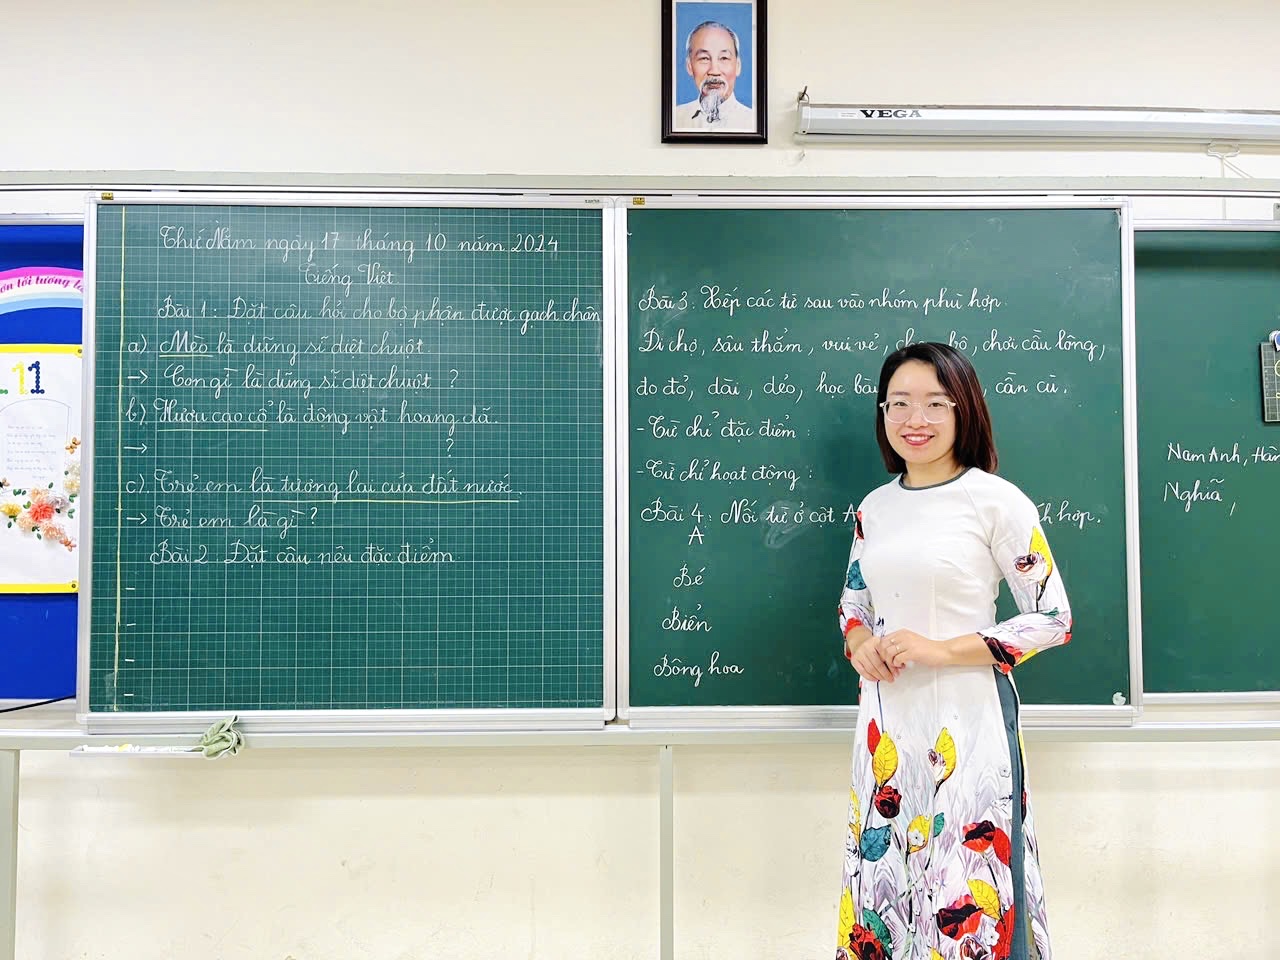 VEGA
ơn tôi tương la
11
Thứ Năm ngày 17 tháng 10 năm 2024
Tiếng Việt
Bài 1: Đặt câu hỏi cho bộ phận được gạch chân
a). Mèo là dũng sĩ diệt chuột.
→ Con gì là dũng sĩ diệt chuột ?
b). Hươu cao cổ là động vật hoang dã.
→ ?
c). Trẻ em là tương lai của đất nước.
→ Trẻ em là gì ?
Bài 2. Đặt câu nêu đặc điểm.
-
-
-
-
Bài 3: Xếp các từ sau vào nhóm phù hợp.
Đi chợ, sâu thẳm, vui vẻ, bộ, chơi cầu lông,
đo đỏ, dài, dẻo, học bài, cần cù.
- Từ chỉ đặc điểm :
- Từ chỉ hoạt động :
Bài 4 : Nối từ ở cột A hợp.
A
Bé
Biển
Bông hoa
Nam Anh, Hân
Nghĩa,